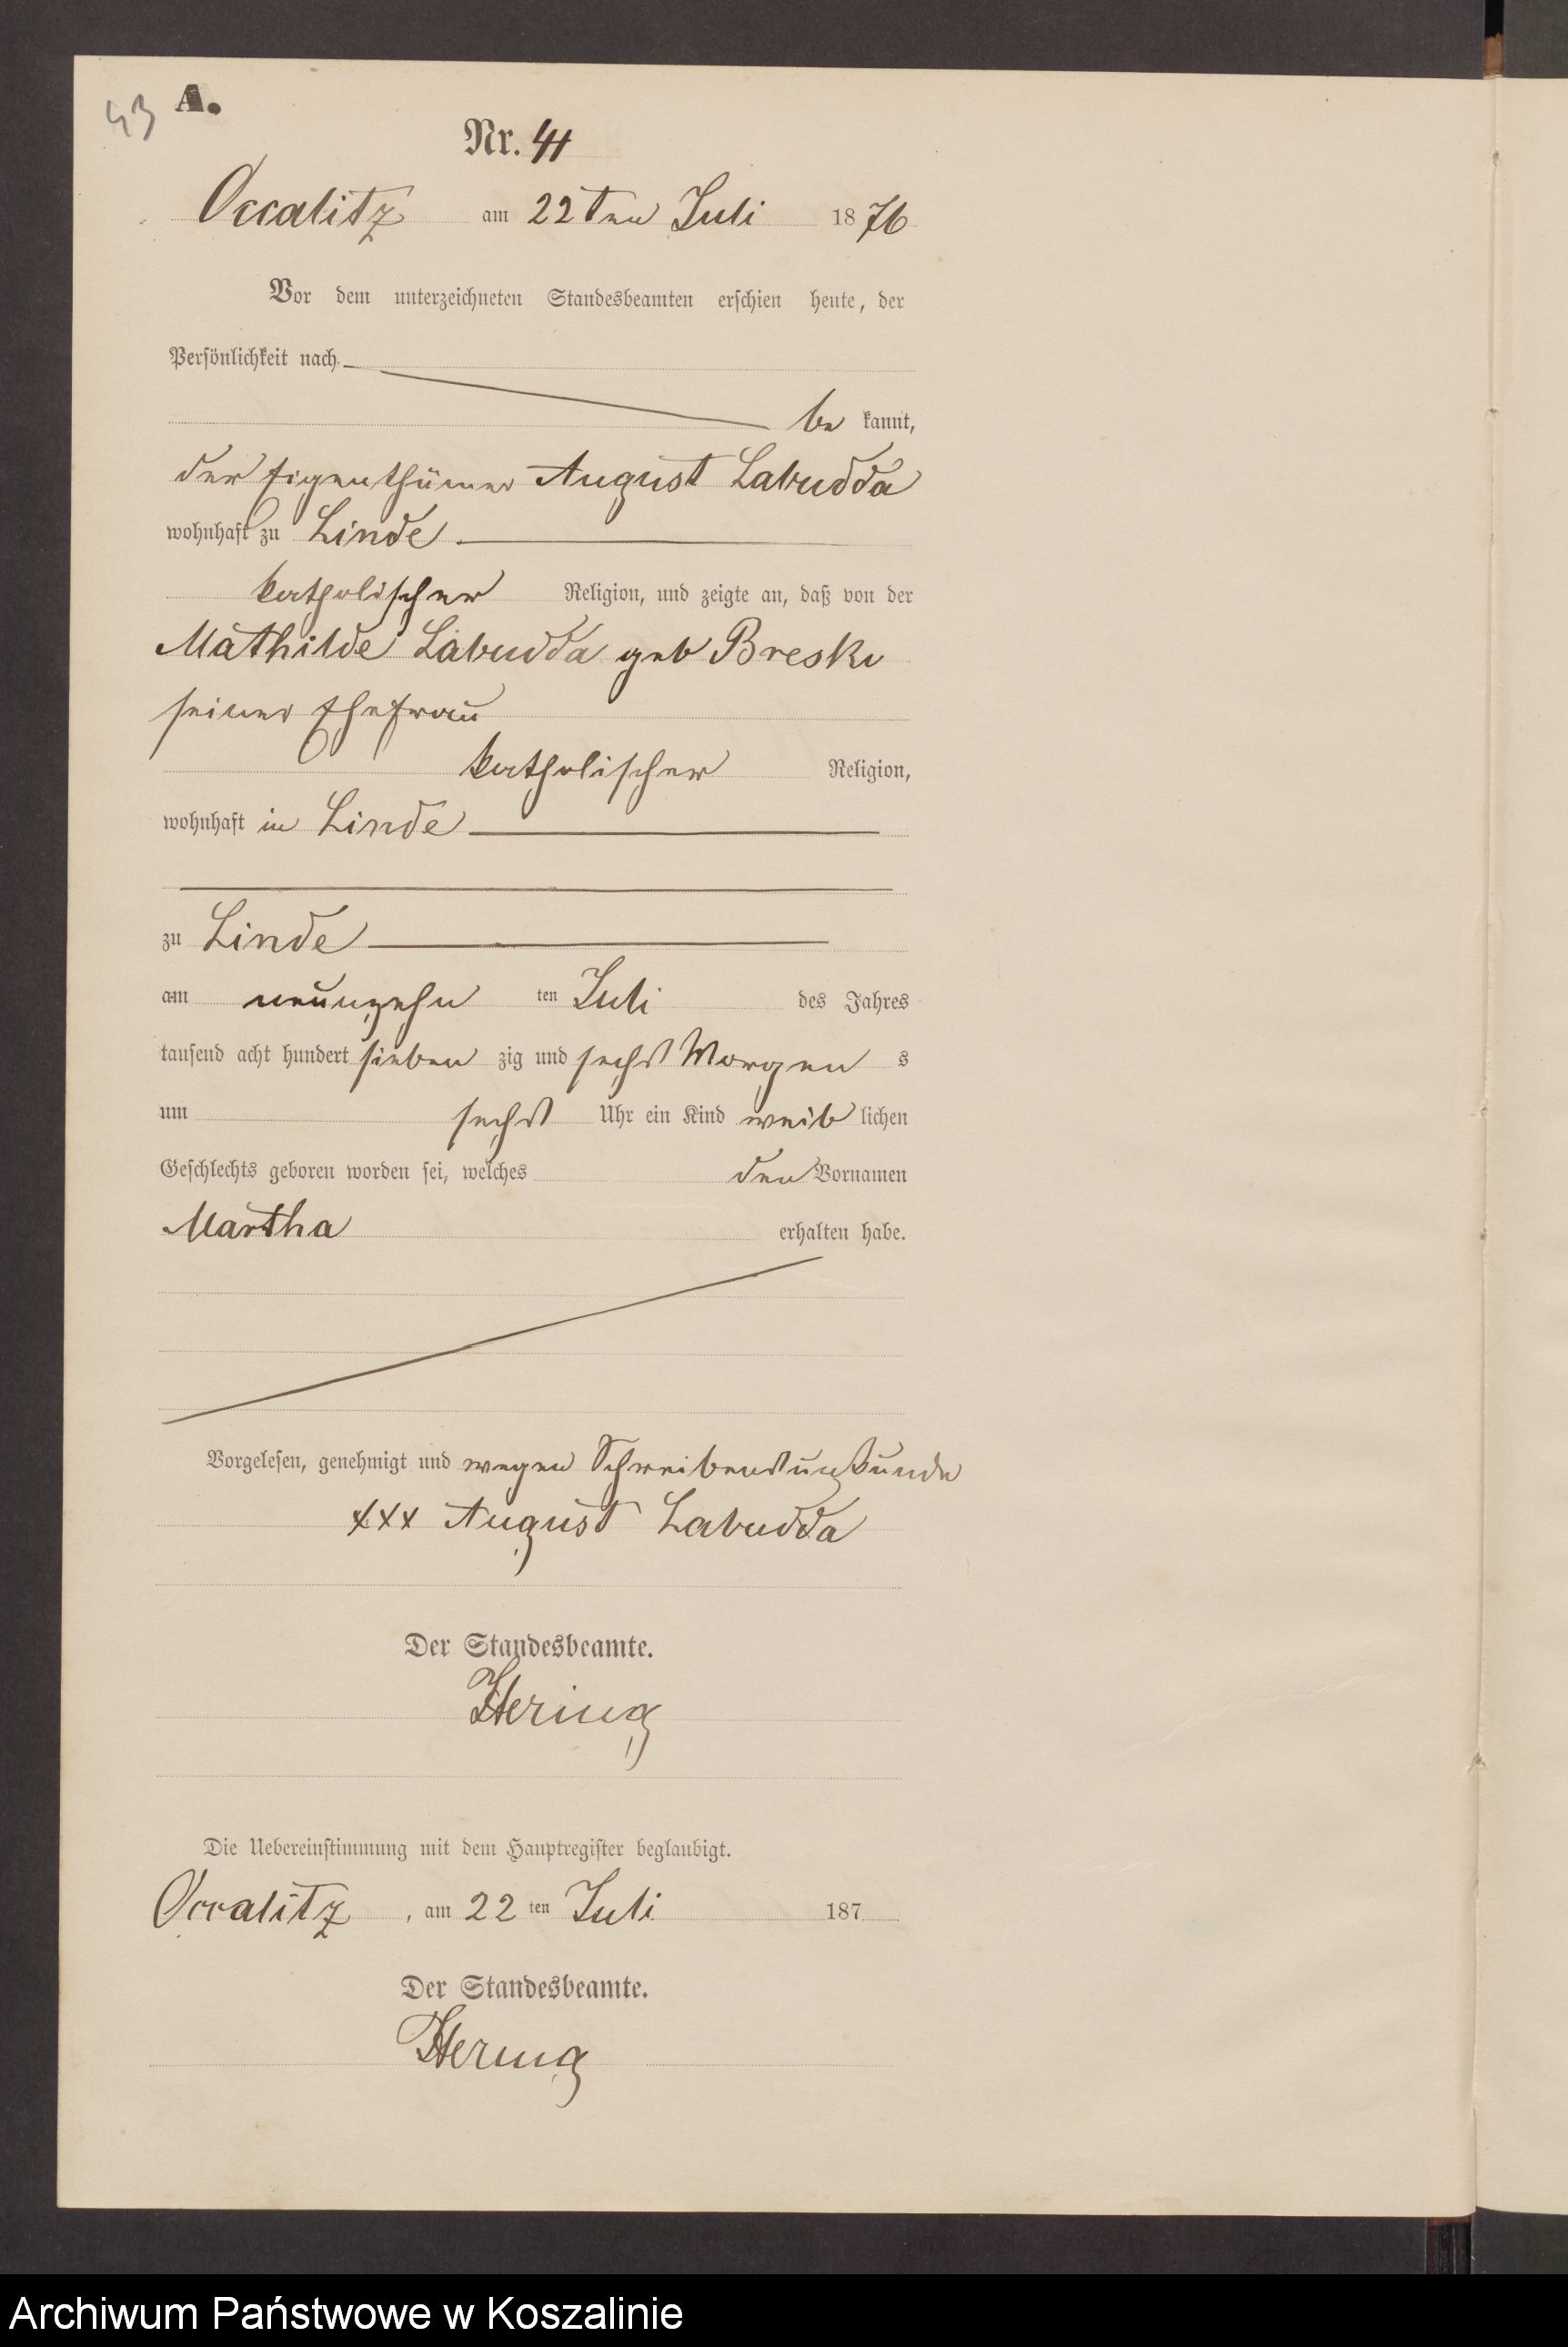 43 A.
Nr. 41
Occalitz am 22ten Juli 1876
Vor dem unterzeichneten Standesbeamten erschien heute, der
Persönlichkeit nach
be kannt,
der Eigenthümer August Labudda
wohnhaft zu Linde
katholischer Religion, und zeigte an, daß von der
Mathilde Labudda geb Breski
seiner Ehefrau
katholischer Religion,
wohnhaft in Linde
zu Linde
am neunzehn ten Juli des Jahres
tausend acht hundert sieben zig und sechs Morgen s
um sechs Uhr ein Kind weib lichen
Geschlechts geboren worden sei, welches den Vornamen
Martha erhalten habe.
Vorgelesen, genehmigt und wegen Schreibensunkunde
xxx August Labudda
Der Standesbeamte.
Hering
Die Uebereinstimmung mit dem Hauptregister beglaubigt.
Occalitz, am 22 ten Juli 187
Der Standesbeamte.
Hering
Archiwum Państwowe w Koszalinie